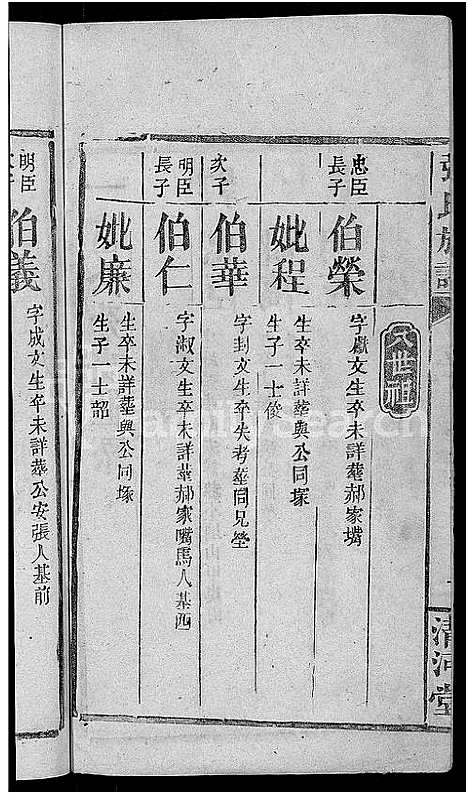 張氏族譜
清河堂
六世祖
忠臣長子
伯榮
字獻文生卒未詳葬郝家嘴
妣程
生卒未詳葬與公同塚
生子一士俊
次子
伯華
字封文生卒失考葬同兄塋
明臣長子
伯仁
字淑文生卒未詳葬郝家嘴馬人基西
妣廉
生卒未詳葬與公同塚
生子一士韶
明臣
伯義
字成文生卒未詳葬公安張人基前